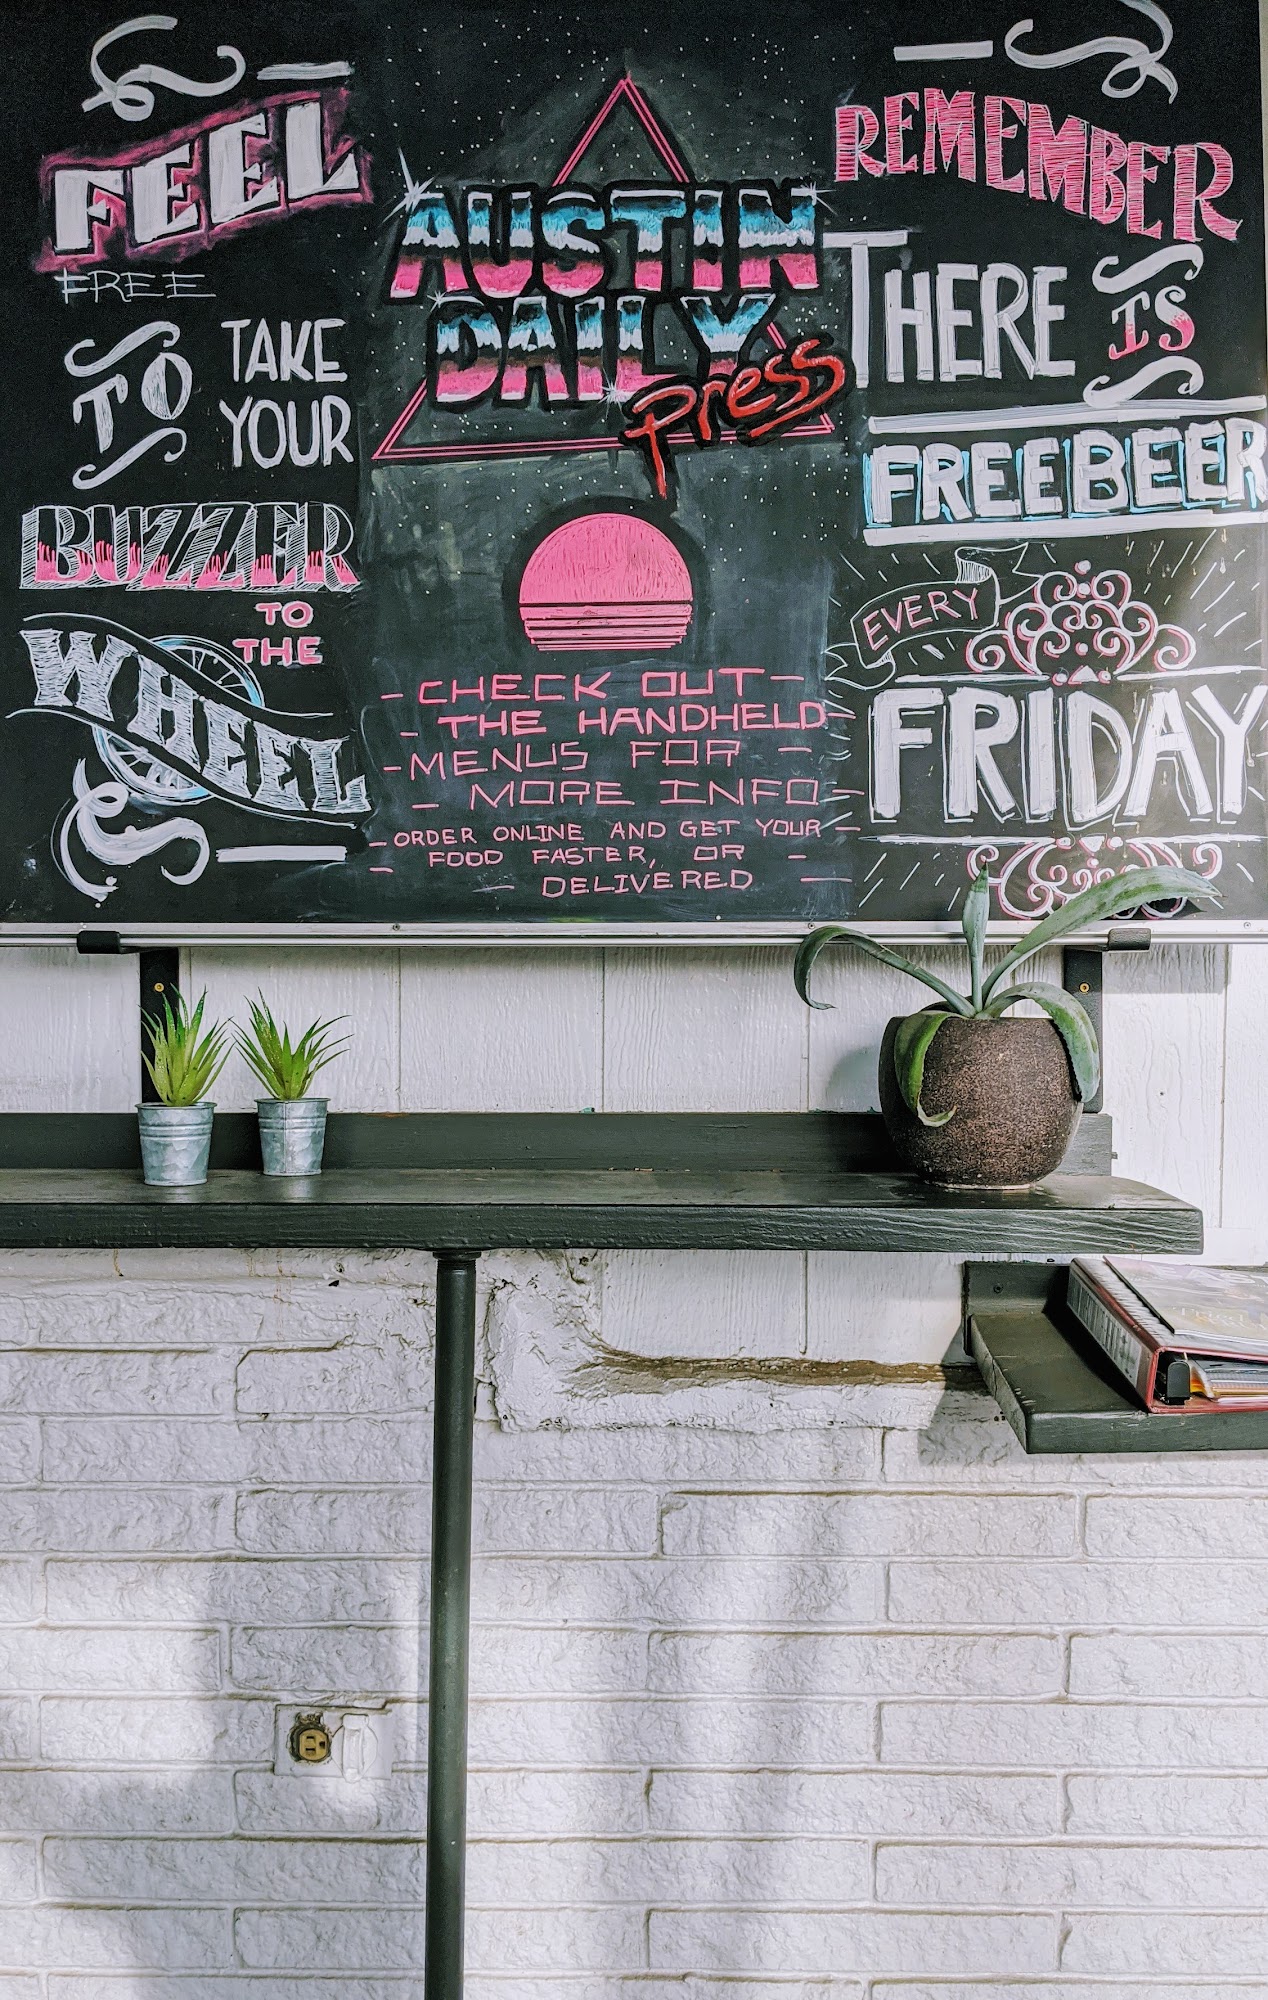 FEEL
FREE
TO TAKE
YOUR
BUZZER
TO
THE
WHEEL
AUSTIN
DAILY
Press
CHECK OUT
THE HANDHELD
MENUS FOR
MORE INFO
ORDER ONLINE AND GET YOUR
FOOD FASTER, OR
DELIVERED
REMEMBER
THERE IS
FREE BEER
EVERY
FRIDAY